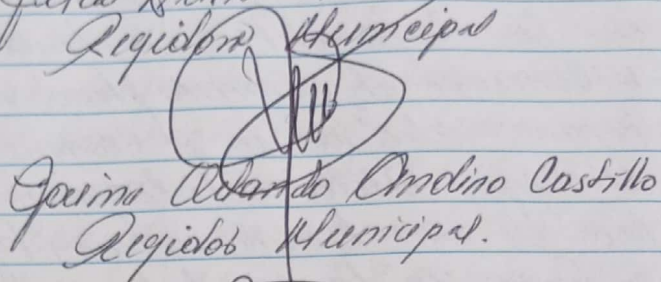 Regidora Municipal
Jaime Orlando Andino Castillo
Regidor Municipal.